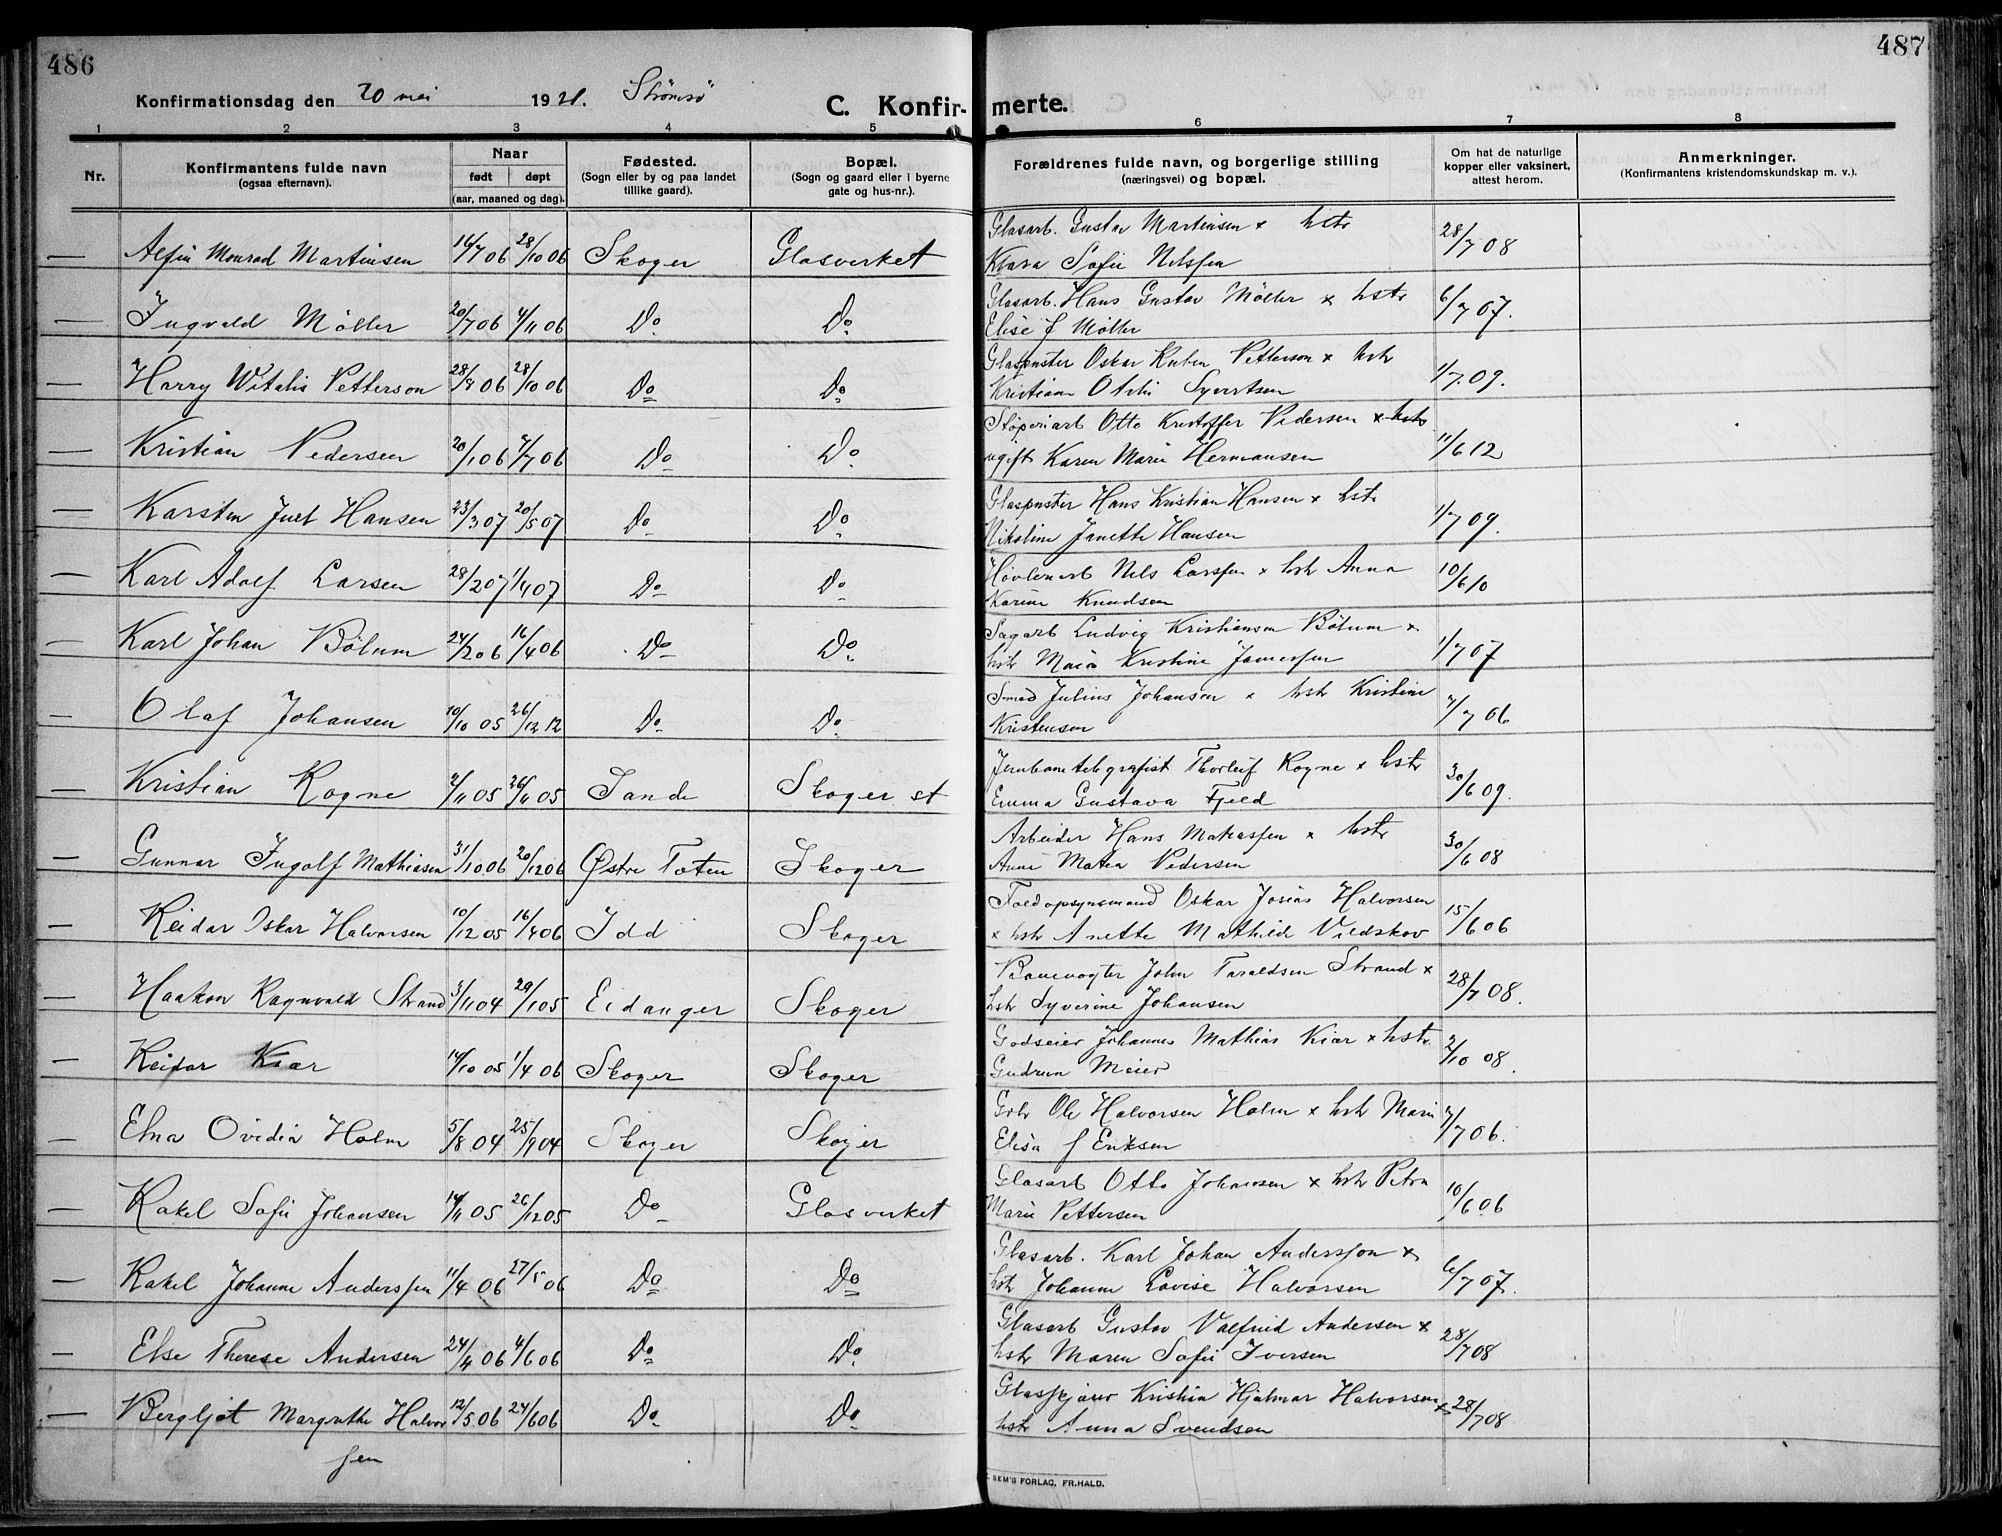 486
487
Konfirmationsdag den 20 mai 1921. Strømsø
C. Konfir-merte.
1 2 3 4 5 6 7 8
Nr. Konfirmantens fulde navn (ogsaa efternavn). Naar født døpt (aar, maaned og dag). Fødested. (Sogn eller by og paa landet tillike gaard). Bopæl. (Sogn og gaard eller i byerne gate og hus-nr.). Forældrenes fulde navn, og borgerlige stilling (næringsvei) og bopæl. Om hat de naturlige kopper eller vaksinert, attest herom. Anmerkninger. (Konfirmantens kristendomskundskap m. v.).
Glasarb. Gustav Martinsen x hstr
— Alfin Monrad Martinsen 16/7 06 28/10 06 Skoger Glasverket Klara Sofie Nilssen 28/7 08
— Ingvald Møller 20/7 06 4/11 06 Do Do Glasarb. Hans Gustav Møller x hstr 6/7 07.
Elise f Møller
— Harry Witalis Petterson 28/8 06 28/10 06 Do Do Oskar Ruben Petterson x hstr 1/7 09.
Otilie Syvertsen
— Kristian Pedersen 20/1 06 7/7 06 Do Do Støperiarb Otto Kristoffer Pedersen x hstr 11/6 12
ugift Karen Marie Hermansen
— Karsten Juel Hansen 23/3 07 20/5 07 Do Do Hans Kristian Hansen x hstr 1/7 09.
Nikoline Janette Hansen
— Karl Adolf Larsen 28/2 07 1/4 07 Do Do Høvleriarb Nils Larssen x hstr Anna 10/6 10
Karine Knudsen
— Karl Johan Bølum 24/2 06 16/4 06 Do Do Sagarb Ludvig Kristiansen Bølum x 1/7 07
hstr Maia Kristine Jamessen
— Olaf Johansen 10/10 05 26/12 12 Do Do Smed Julius Johansen x hstr Kristine 7/7 06
Kristensen
— Kristian Rogne 2/11 05 26/11 05 Sande Skoger st Jernbanetelegrafist Thorleif Rogne x hstr 30/6 09.
Emma Gustava Fjeld
— Gunnar Ingolf Mathiasen 31/10 06 20/12 06 Østre Toten Skoger Arbeider Hans Matiassen x hstr 30/6 08
Anne Matea Pedersen
— Reidar Oskar Halvorsen 10/12 05 16/4 06 Idd Skoger Toldopsynsmand Oskar Josias Halvorsen 15/6 06
x hstr Anette Mathilde Vildskov
— Haakon Ragnvald Strand 3/11 04 29/1 05 Eidanger Skoger Banevogter John Taraldsen Strand x 28/7 08.
hstr Syverine Johansen
— Reidar Kiær 14/10 05 1/4 06 Skoger Skoger Godseier Johannes Mathias Kiær x hstr 2/10 08.
Gudrun Meier
— Elna Ovidia Holm 5/8 04 25/9 04 Skoger Skoger Grbr Ole Halvorsen Holm x hstr Marie 7/7 06.
Elisa f Eriksen
— Rakel Sofie Johansen 14/11 05 26/12 05 Do Glasverket Glasarb Otto Johansen x hstr Petra 10/6 06
Marie Pettersen
— Rakel Johanne Anderssen 11/4 06 27/5 06 Do Do Glasarb. Karl Johan Anderssen x 6/7 07.
hstr Johanne Lovise Halvorsen
— Else Therese Andersen 24/4 06 4/6 06 Do Do Glasarb Gustav Valfrid Andersen x 28/7 08
hstr Maren Sofie Iversen
— Bergljot Margrethe Halvor 12/5 06 24/6 06 Do Do Kristian Hjalmar Halvorsen x 28/7 08
hstr Anna Svendsen
sen
SEM'S FORLAG, FR.HALD.